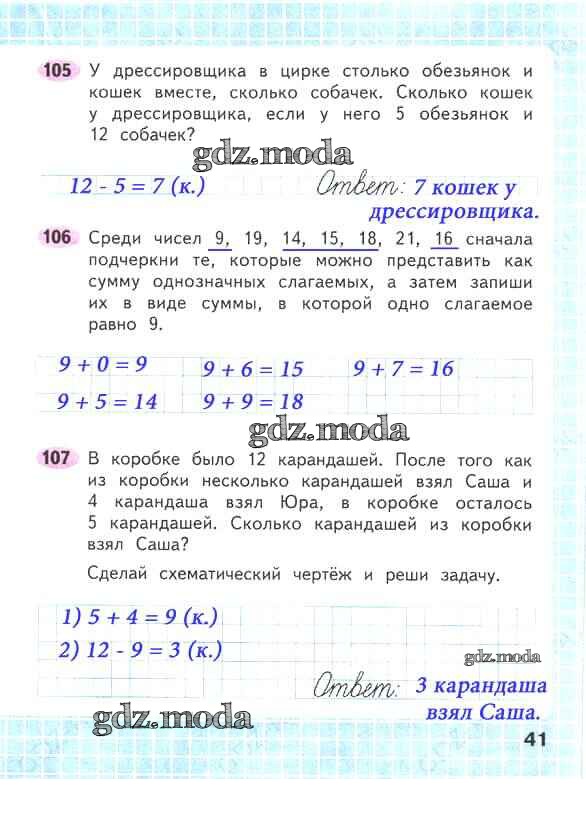 105 У дрессировщика в цирке столько обезьянок и
кошек вместе, сколько собачек. Сколько кошек
у дрессировщика, если у него 5 обезьянок и
12 собачек?
gdz.moda
12 - 5 = 7 (к.) Ответ: 7 кошек у
дрессировщика.
106 Среди чисел 9, 19, 14, 15, 18, 21, 16 сначала
подчеркни те, которые можно представить как
сумму однозначных слагаемых, а затем запиши
их в виде суммы, в которой одно слагаемое
равно 9.
9 + 0 = 9 9 + 6 = 15 9 + 7 = 16
9 + 5 = 14 9 + 9 = 18
gdz.moda
107 В коробке было 12 карандашей. После того как
из коробки несколько карандашей взял Саша и
4 карандаша взял Юра, в коробке осталось
5 карандашей. Сколько карандашей из коробки
взял Саша?
Сделай схематический чертёж и реши задачу.
1) 5 + 4 = 9 (к.)
2) 12 - 9 = 3 (к.)
gdz.moda
Ответ: 3 карандаша
взял Саша.
gdz.moda
41